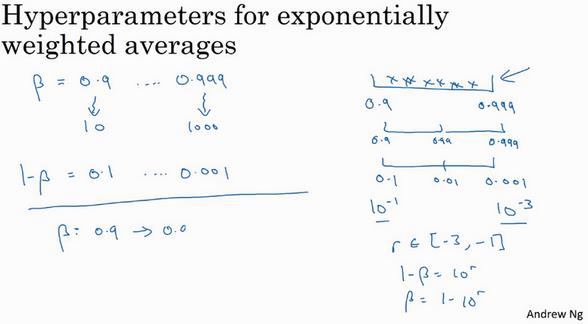 Hyperparameters for exponentially
weighted averages
β = 0.9 .... 0.999
10 1000
1-β = 0.1 .... 0.001
β = 0.9 → 0.9
x x x x x x x
0.9 0.999
0.9 0.99 0.999
0.1 0.01 0.001
10⁻¹ 10⁻³
r ∈ [-3, -1]
1-β = 10ʳ
β = 1-10ʳ
Andrew Ng